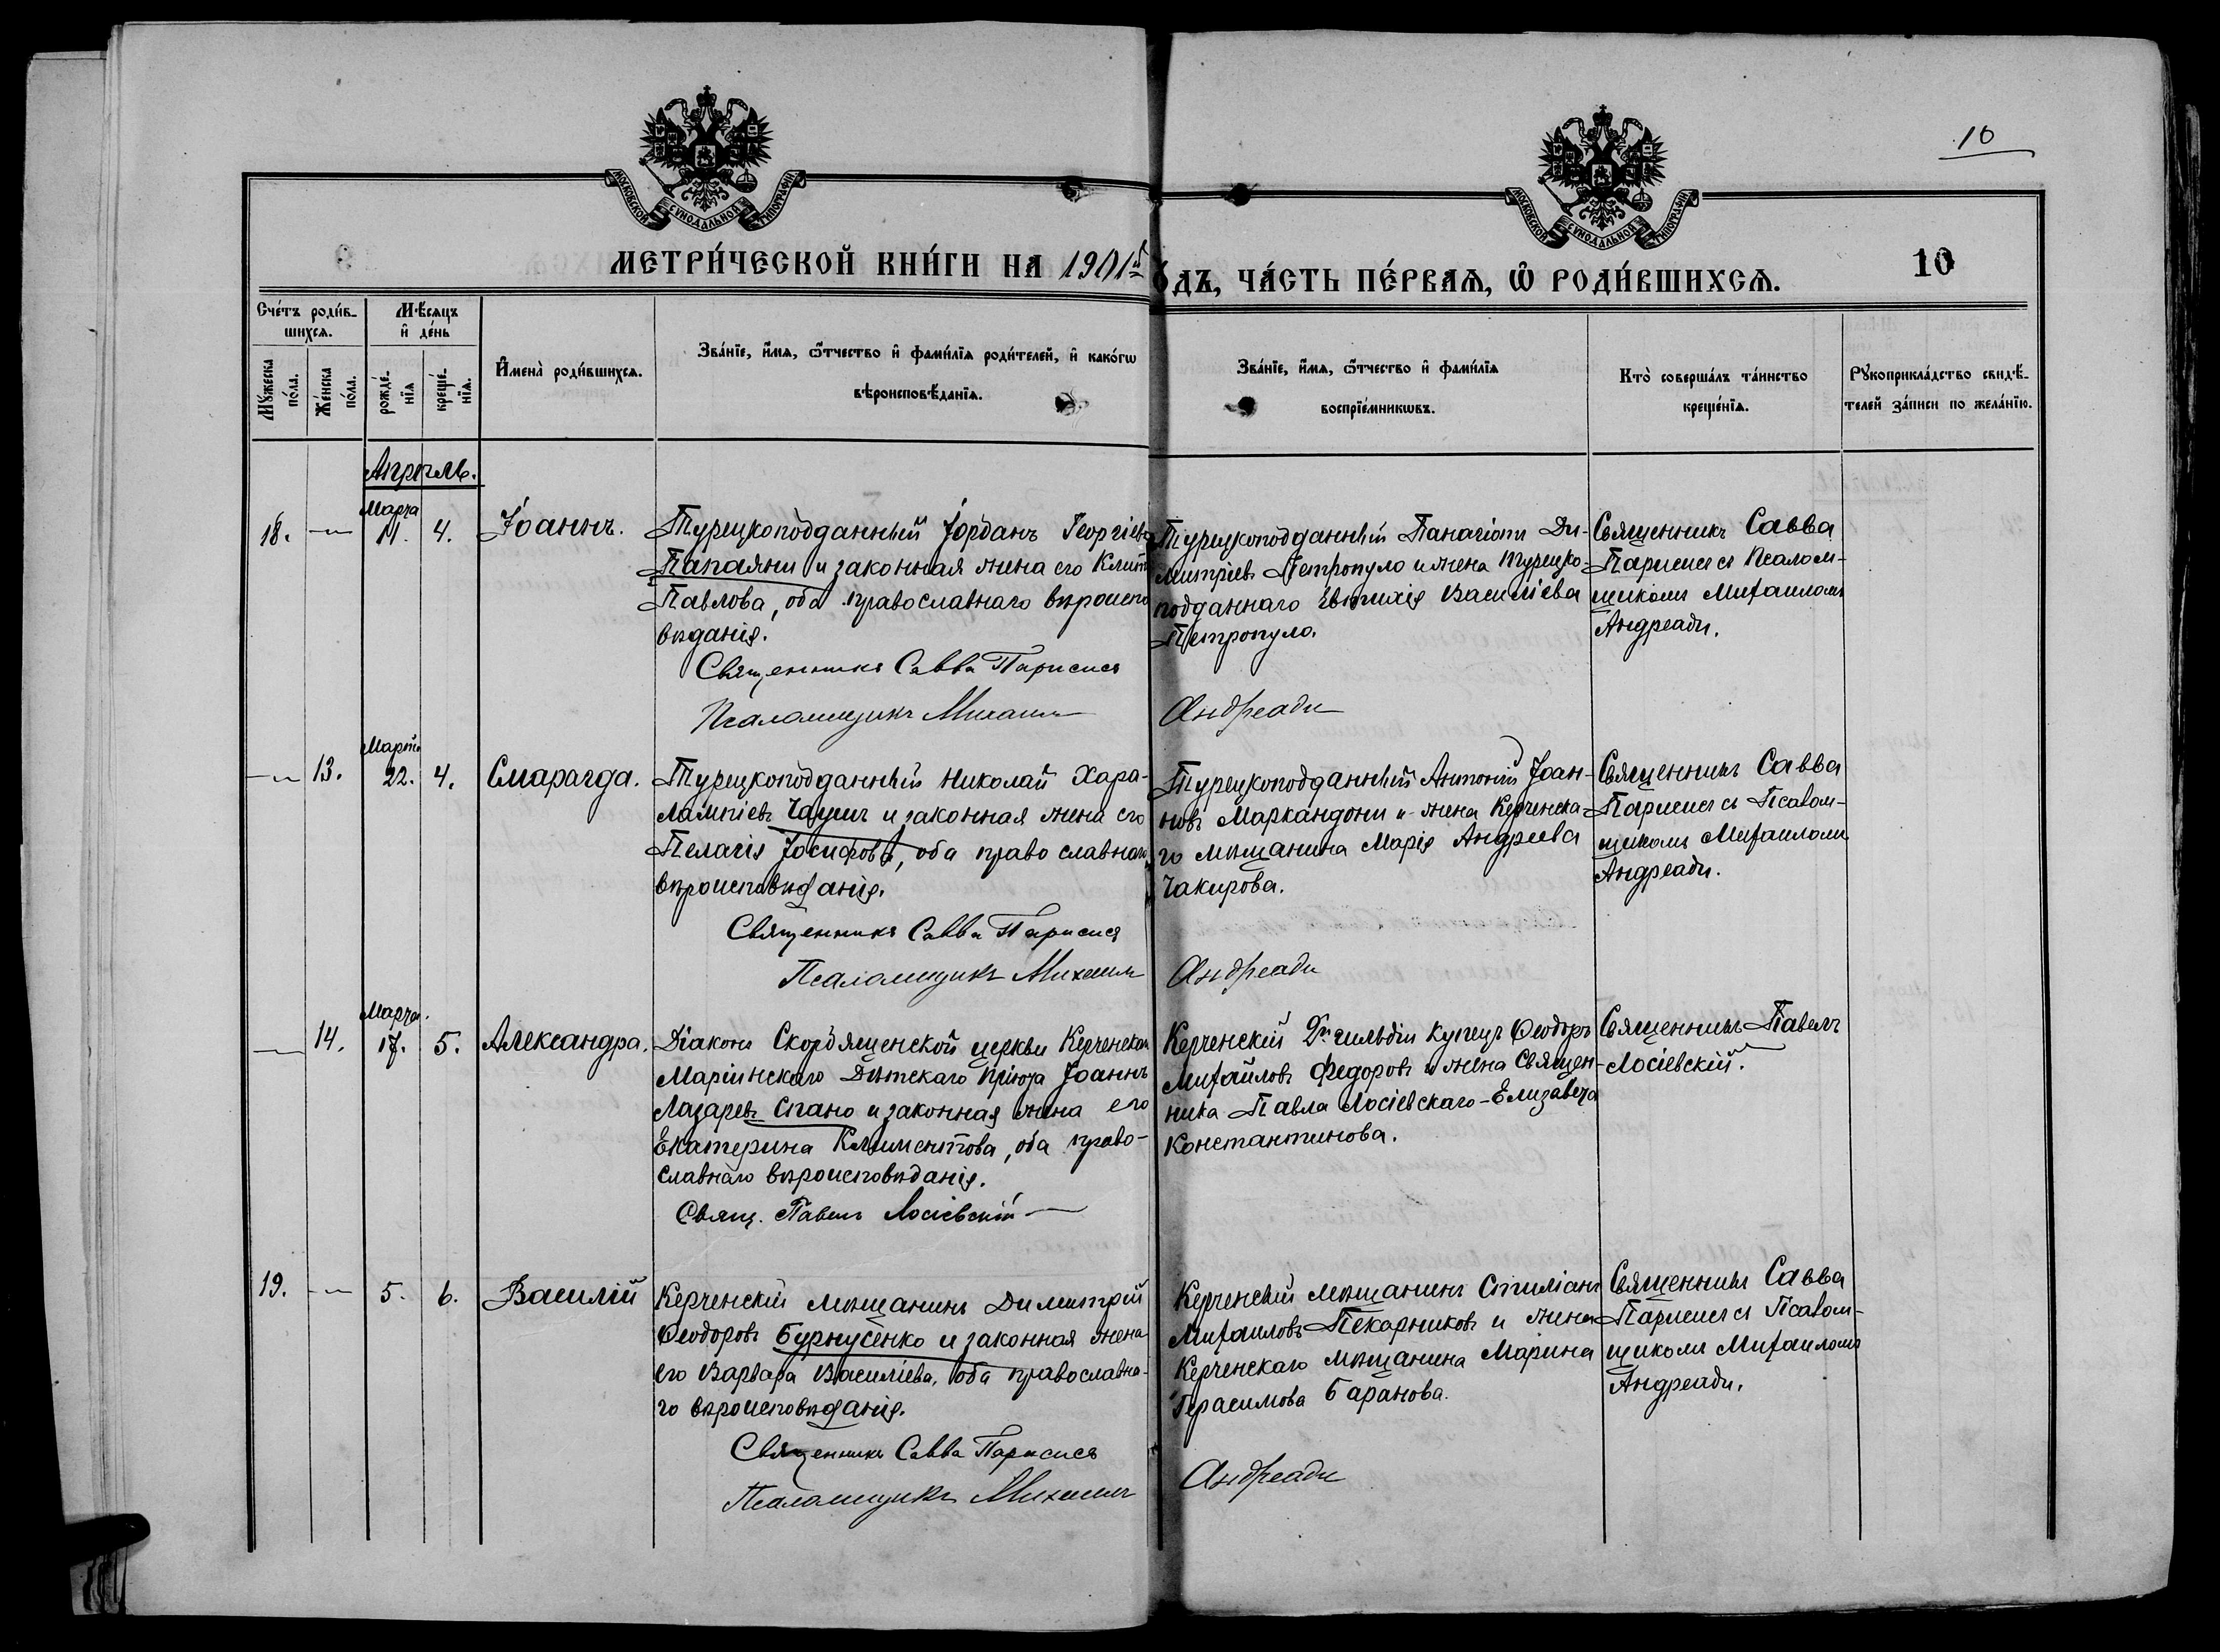 10
МОСКОВСКОЙ СѴНОДАЛЬНОЙ ТИПОГРАФІИ
МОСКОВСКОЙ СѴНОДАЛЬНОЙ ТИПОГРАФІИ
МЕТРИ́ЧЕСКОЙ КНИ́ГИ НА 1901й
О́ДЪ, ЧА́СТЬ ПЕ́РВАѦ, Ѡ҆ РОДИ́ВШИХСѦ.
10
Сче́тъ роди́в-
шихсѧ.
Мѣ́сѧцъ
и҆ де́нь
Мꙋ́жеска
по́ла.
Же́нска
по́ла.
рожде́-
нїѧ
креще́-
нїѧ.
И҆мена̀ роди́вшихсѧ.
Зва́нїе, и҆́мѧ, ѻ҆́тчество и҆ фами́лїѧ роди́телей, и҆ како́гѡ
вѣроисповѣ́данїѧ.
Зва́нїе, и҆́мѧ, ѻ҆́тчество и҆ фами́лїѧ
воспрїе́мникѡвъ.
Кто̀ соверша́лъ та́инство
креще́нїѧ.
Рꙋкоприкла́дство свидѣ́-
телей за́писи по жела́нїю.
Апрѣль.
18. — Марта 11. 4. Іоаннъ.
Турецкоподданный Іорданъ Георгіевъ
Папаяни и законная жена его
Павлова, оба православнаго вѣроиспо
вѣданія.
Священникъ Савва Парисисъ
Псаломщикъ Михаилъ
Турецкоподданный Панагіотъ Ди-
митріевъ Петропуло и жена турецко-
подданнаго Евтихія Василіева
Петропуло.
Андреади
Священникъ Савва
Парисисъ съ Псалом-
щикомъ Михаиломъ
Андреади.
— 13. Марта 22. 4. Смарагда.
Турецкоподданный Николай Хара-
лампіевъ Чаушъ и законная жена его
Пелагія Іосифова, оба православнаго
вѣроисповѣданія.
Священникъ Савва Парисисъ
Псаломщикъ Михаилъ
Турецкоподданный Антоній Іоан-
новъ Маркандони и жена Керченска-
го мѣщанина Марія Андреева
Чакирова.
Андреади
Священникъ Савва
Парисисъ съ Псалом-
щикомъ Михаиломъ
Андреади.
— 14. Марта 17. 5. Александра.
Діаконъ Скорбященской церкви Керченскаго
Маріинскаго Дѣтскаго Пріюта Іоаннъ
Лазаревъ Спано и законная жена его
Екатерина Климентова, оба право-
славнаго вѣроисповѣданія.
Свящ. Павелъ Лосіевскій
Керченскій 2й гильдіи купецъ Ѳеодоръ
Михайловъ Федоровъ и жена Священ-
ника Павла Лосіевскаго-Елизавета
Константинова.
Священникъ Павелъ
Лосіевскій.
19. — 5. 6. Василій
Керченскій мѣщанинъ Димитрій
Ѳеодоровъ Бурнусенко и законная жена
его Варвара Василіева, оба православна-
го вѣроисповѣданія.
Священникъ Савва Парисисъ
Псаломщикъ Михаилъ
Керченскій мѣщанинъ Стиліанъ
Михаиловъ Пекарниковъ и жена
Керченскаго мѣщанина Марина
Герасимова Баранова.
Андреади
Священникъ Савва
Парисисъ съ Псалом-
щикомъ Михаиломъ
Андреади.